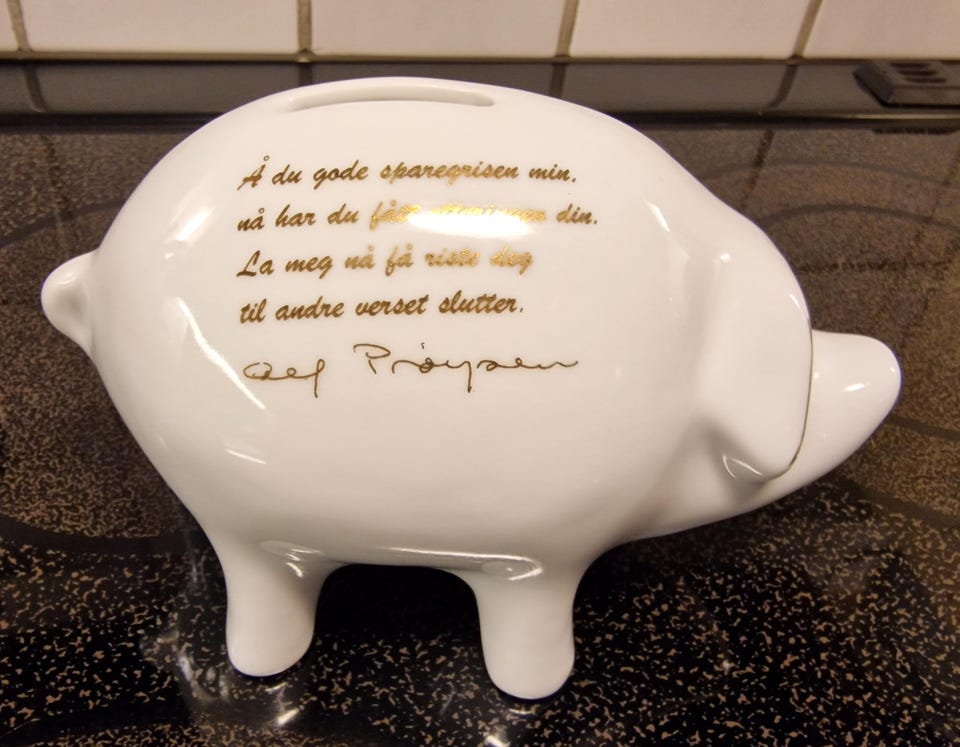 Å du gode sparegrisen min,
nå har du fått din.
La meg nå få riste deg
til andre verset slutter.
Alf Prøysen